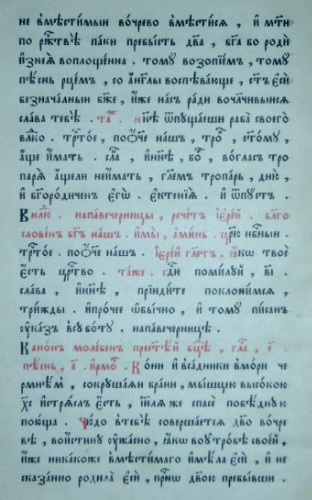 не вмѣстимыи вочрево вмѣстисѧ , и мт҃и
по рж҃твѣ паки пребысть два , бг҃а бо роди
изнеѧ воплощенна . тому возопїем , тому
пѣснь рцем , со англы воспѣвающе , ст҃ъ еси
безначалныи бж҃е , иже насъ ради вочл҃чивыисѧ
слава тебѣ . таж . нн҃ѣ ѿпущаеши раба своего
влк҃о . трст҃ое , поѻч҃е нашъ , тро , ст҃ому ,
аще имать . сла , инн҃ѣ , бо , вогласъ тро
парѧ ащели неимать , гл҃ем тропарь , дню ,
и бг҃ородиченъ его . ектенїѧ . и ѿпустъ .
Вилию . напавечерницы , речетъ їерей . благо
словенъ бг҃ъ нашъ . и мы , аминь . цр҃ю нб҃ныи .
трст҃ое . поѻч҃е нашъ . їерей гл҃етъ . ꙗко твое
есть царство . таже . гд҃и помилуй , ві .
слава , инн҃ѣ , прїидите поклонимсѧ ,
трижды . ипрочее ѡбычно , и тому писанъ
указъ всуботу . напавечерницѣ .
Канонъ молебенъ прест҃ѣй бц҃ѣ , гла , є҃
пѣснь , а҃ . ирмос . Кони и всадники вморе чер
мнѣем , сокрушаѧи брани , мышцею высокою
хс҃ истрѧслъ есть , ийлѧ же спасе побѣдную
поюща . Чюдо втебѣ совершаетсѧ дв҃о вочре
вѣ , воистину ужасно , ꙗко воутробѣ своей ,
иже никакоже вмѣстимаго имѣла еси , и не
сказанно родила еси , прнѡ двою пребывши .